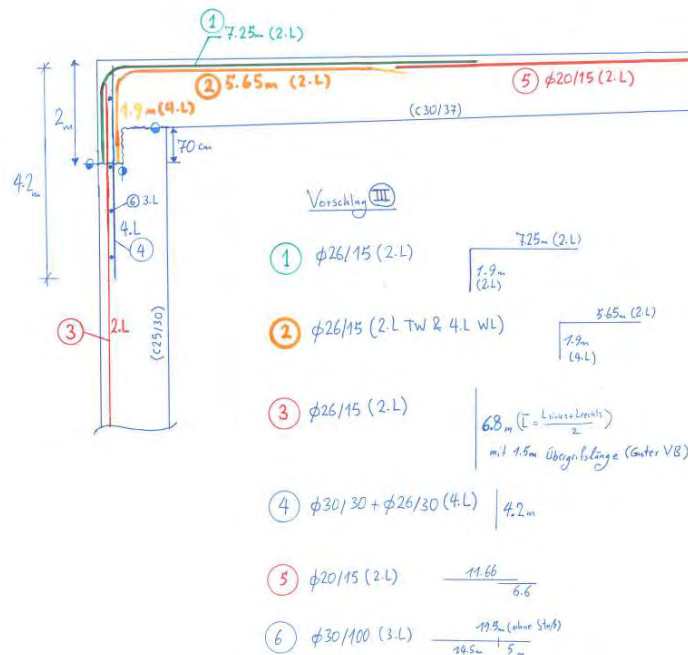 ① 7.25m (2.L)
② 5.65m (2.L)
⑤ ϕ20/15 (2.L)
1.9m (4.L)
(C30/37)
2m
70 cm
4.2m
⑥ 3.L
4.L
④
③ 2.L
(C25/30)
Vorschlag III
① ϕ26/15 (2.L)
7.25m (2.L)
1.9m
(2.L)
② ϕ26/15 (2.L TW & 4.L WL)
5.65m (2.L)
1.9m
(4.L)
③ ϕ26/15 (2.L)
6.8m (L̄ = Llinks+Lrechts / 2)
mit 1.5m Übergrifslänge (Guter VB)
④ ϕ30/30 + ϕ26/30 (4.L)
4.2m
⑤ ϕ20/15 (2.L)
11.66
6.6
⑥ ϕ30/100 (3.L)
19.5m (ohne Stoß)
14.5m
5m